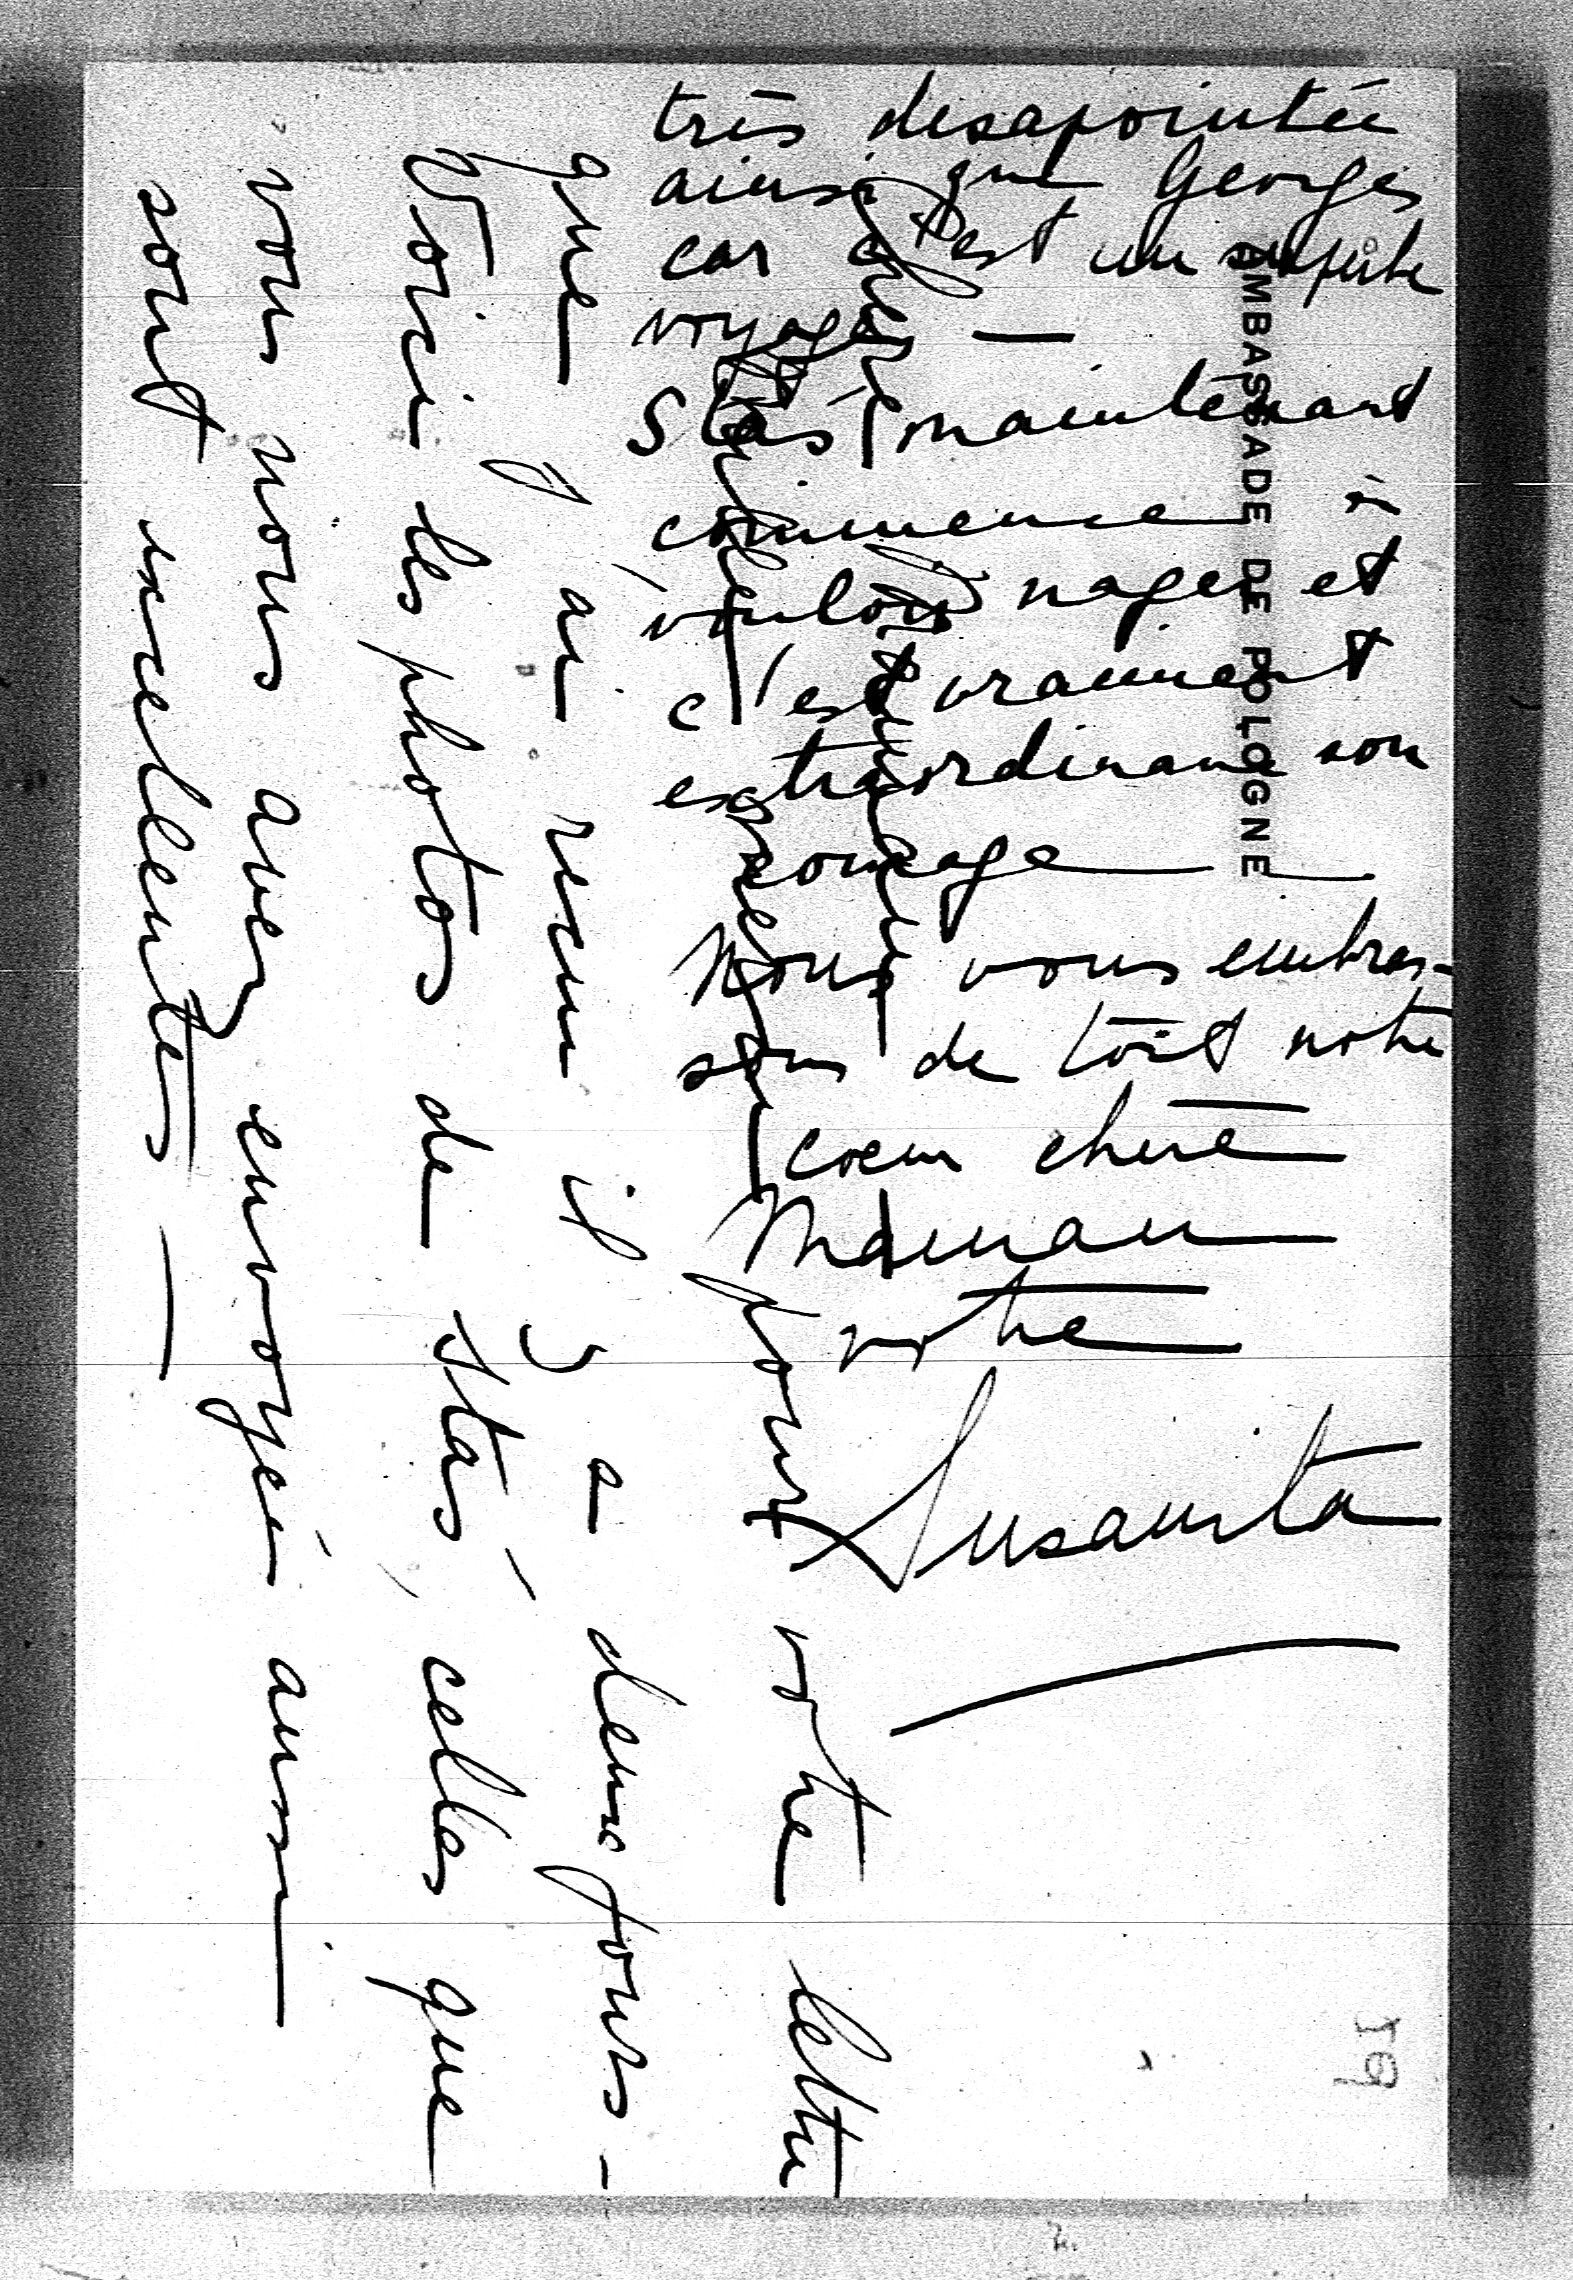 AMBASSADE DE POLOGNE
pour votre lettre
que j'ai reçu il y a deux jours -
Voici les photos de Stas, celles que
vous nous avez envoyée aussi
sont excellentes —
très desapointée
ainsi que Georges
car c'est un superbe
voyage —
Stas maintenant
commence à
vouloir nager et
c'est vraiment
extraordinaire son
courage —
Nous vous embras-
sons de tout notre
coeur chère
Maman
votre
Susanita